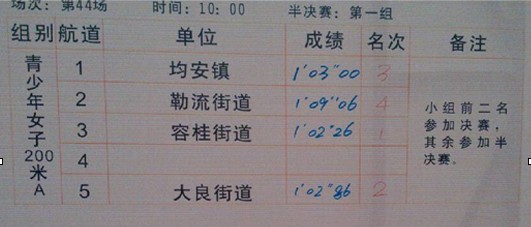 场次：第44场 时间：10：00 半决赛：第一组
组别 航道 单位 成绩 名次 备注
青少年女子200米A
1 均安镇 1'03"00 3
2 勒流街道 1'09"06 4
3 容桂街道 1'02"26 1
4
5 大良街道 1'02"86 2
小组前二名
参加决赛，
其余参加半
决赛。